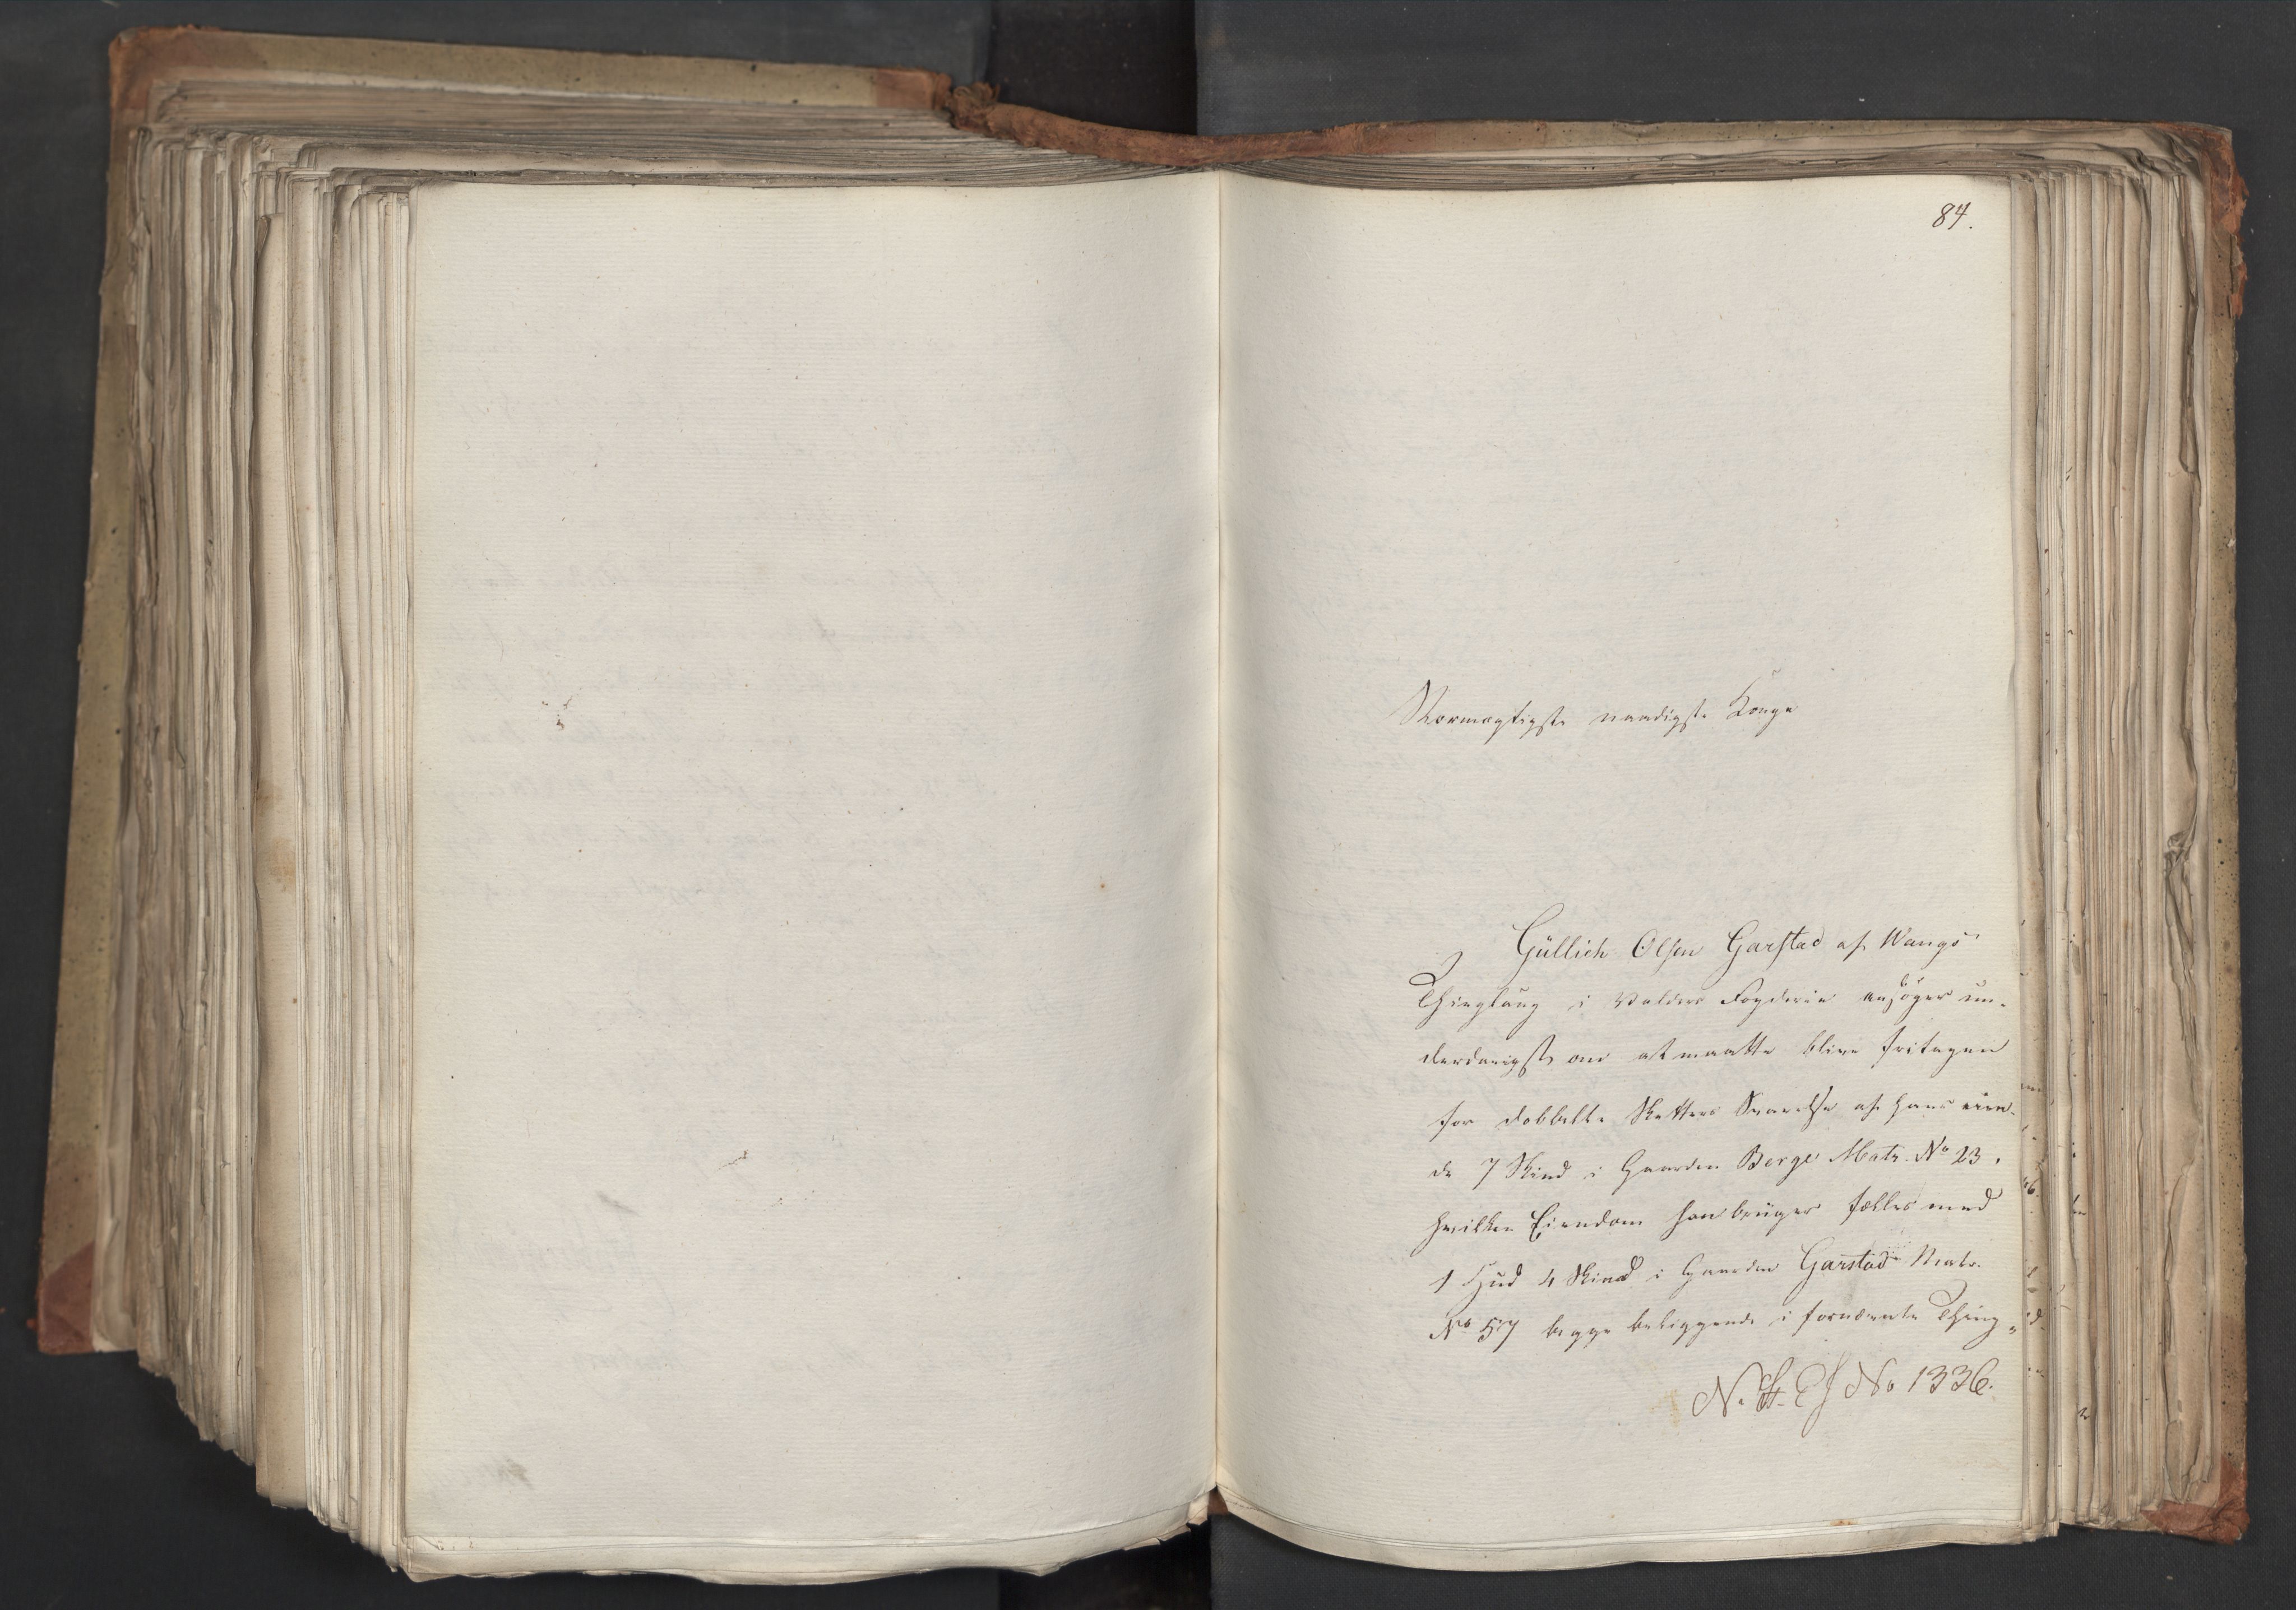 84.
Stormægtigste naadigste Konge
Güllich Olsen Garstad af Wangs
Thinglaug i Valders Fogderie ansøger un-
derdanigst om at maatte blive fritagen
for dobbelte Skatters Svarelse af hans eien-
de 7 Skind i Gaarden Berge Matr. No 23,
hvilken Eiendom han brüger fælles med
1 Hud 4 Skind i Gaarden Garstad Matr.
No 57 begge beliggende i fornævnte Thing-
No 1336.